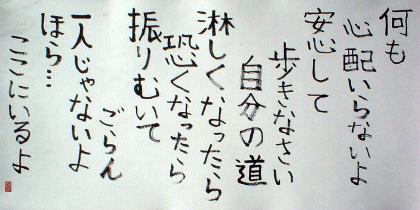 何も
心配いらないよ
安心して
歩きなさい
自分の道
淋しくなったら
恐くなったら
振りむいて
ごらん
一人じゃないよ
ほら…
ここにいるよ